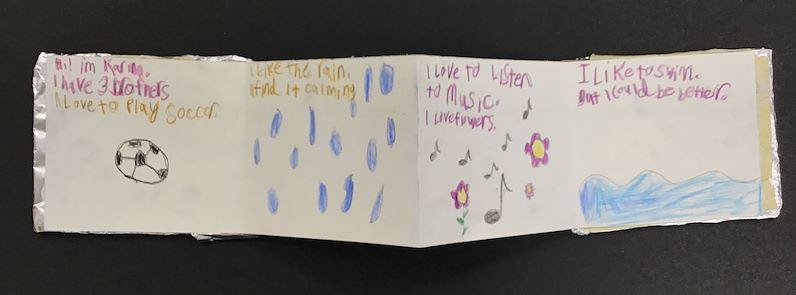 Hi! im Karina.
I have 3 brothers
I Love to Play Soccer.
I like the rain.
I find it calming
I Love to Listen
to Music.
I love flowers.
I Like to swim.
But I could be better.